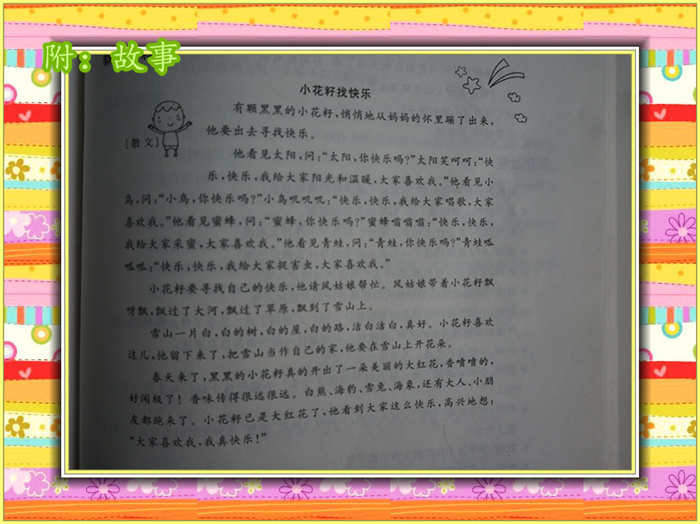 附：故事
小花籽找快乐
有颗黑黑的小花籽，悄悄地从妈妈的怀里蹦了出来，
他要出去寻找快乐。
[散文]
他看见太阳，问：“太阳，你快乐吗？”太阳笑呵呵：“快
乐，快乐，我给大家阳光和温暖，大家喜欢我。”他看见小
鸟，问：“小鸟，你快乐吗？”小鸟叽叽叽：“快乐，快乐，我给大家唱歌，大家
喜欢我。”他看见蜜蜂，问：“蜜蜂，你快乐吗？”蜜蜂嗡嗡嗡：“快乐，快乐，
我给大家采蜜，大家喜欢我。”他看见青蛙，问：“青蛙，你快乐吗？”青蛙呱
呱呱：“快乐，快乐，我给大家捉害虫，大家喜欢我。”
小花籽要寻找自己的快乐，他请风姑娘帮忙。风姑娘带着小花籽飘
呀飘，飘过了大河，飘过了草原，飘到了雪山上。
雪山一片白，白的树，白的屋，白的路，洁白洁白，真好。小花籽喜欢
这儿，他留下来了，把雪山当作自己的家，他要在雪山上开花朵。
春天来了，黑黑的小花籽真的开出了一朵美丽的大红花，香喷喷的，
好闻极了！香味传得很远很远。白熊、海豹、雪兔、海象，还有大人、小朋
友都跑来了。小花籽已是大红花了，他看到大家这么快乐，高兴地想：
“大家喜欢我，我真快乐！”